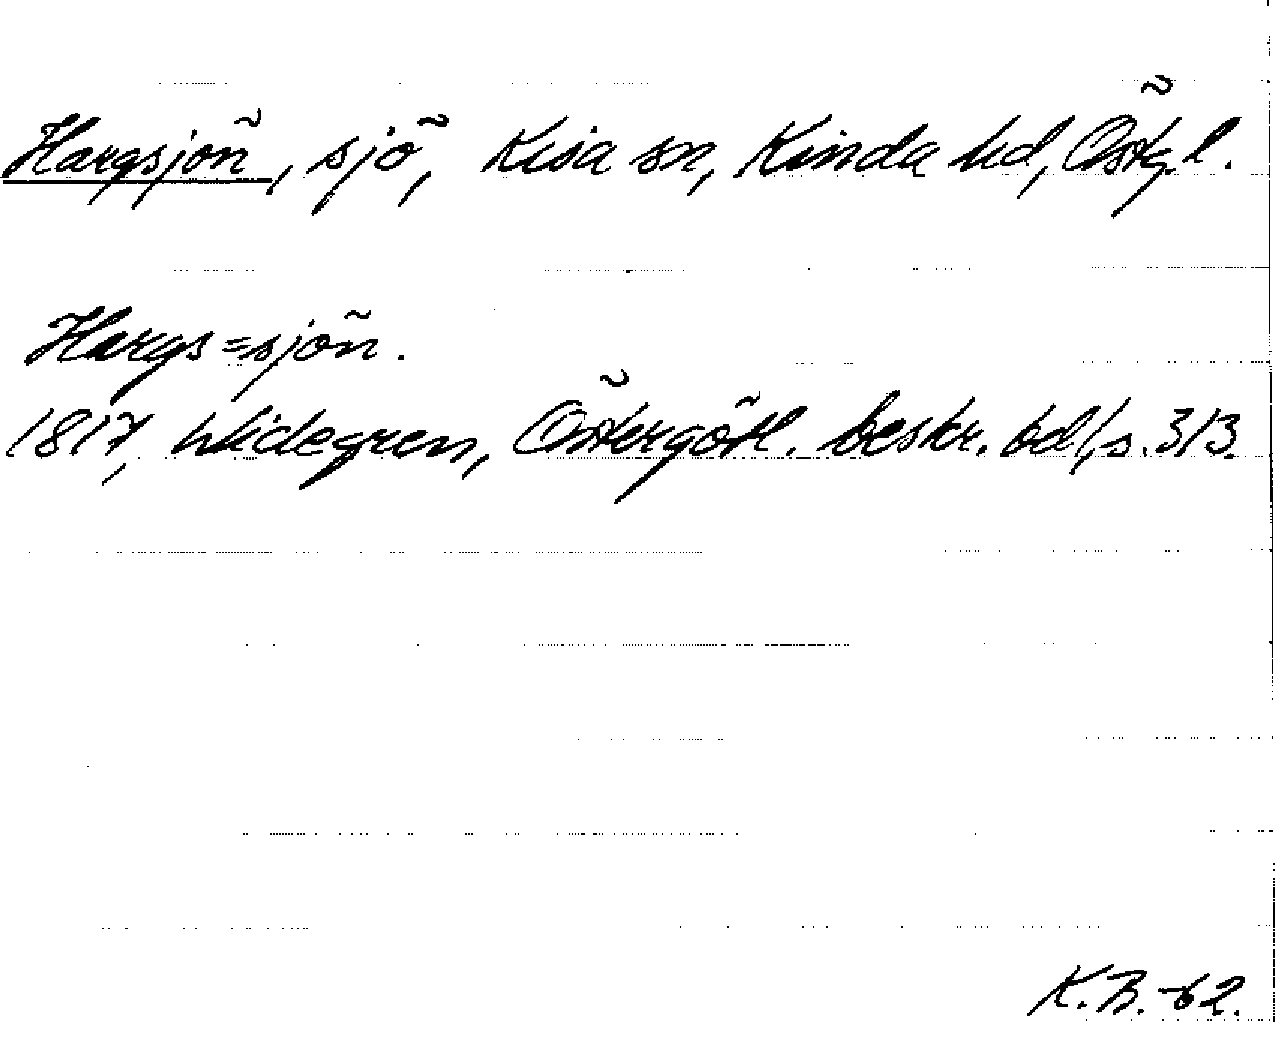 Hargsjön, sjö, Kisa sn, Kinda hd, Östg. l.
Hargs=sjön.
1817, Widegren, Östergötl. beskr. bd 1, s. 313.
K.B. -62.